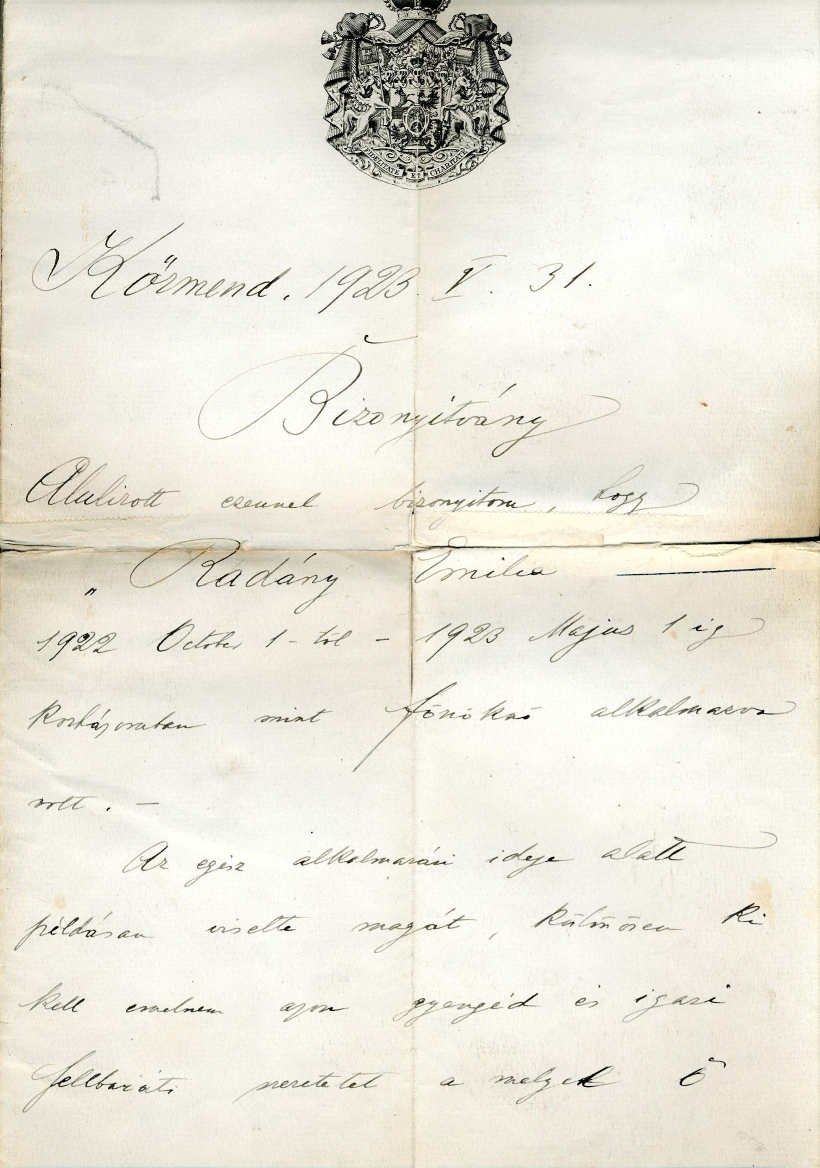 FIDELITATE ET CHARITATE
Körmend. 1923. V. 31.
Bizonyitvány
Alulirott ezennel bizonyitom, hogy
„ Radány Emilia
1922 October 1-től - 1923 Május 1 ig
mint főnöknő alkalmazva
volt. -
Az egész alkalmazási ideje alatt
példásan viselte magát, különösen ki
kell emelnem azon gyengéd és igazi
felebaráti szeretetet a melyel Ő